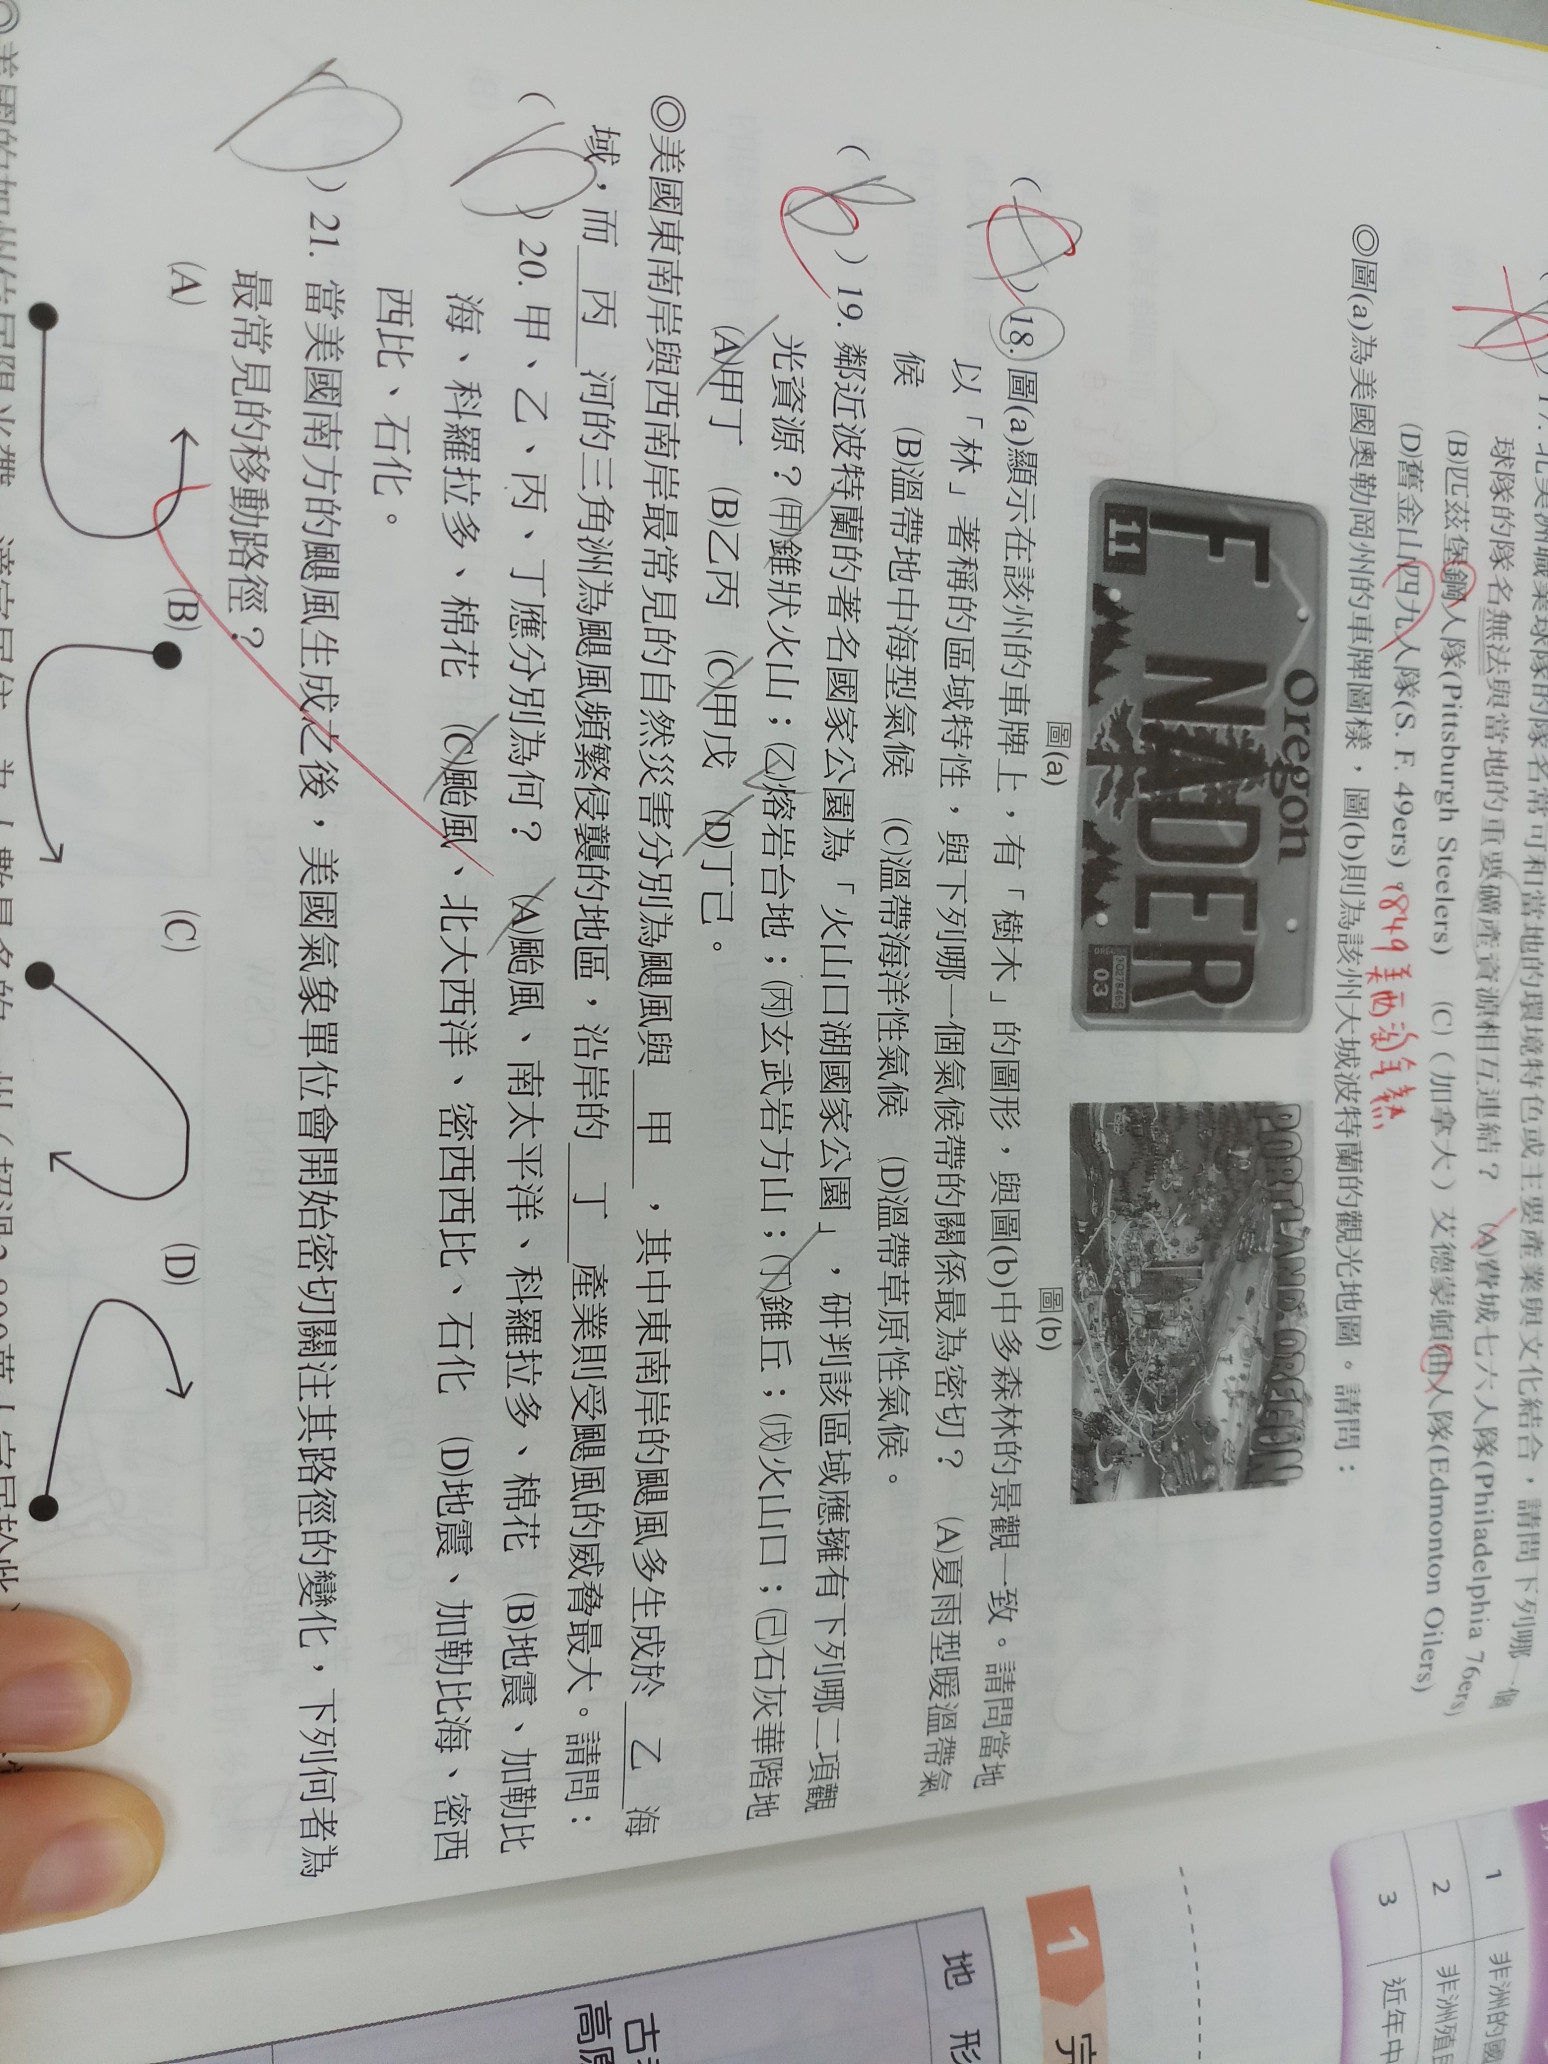 17. 北美洲職業球隊的隊名常可和當地的環境特色或主要產業與文化結合，請問下列哪一個
球隊的隊名無法與當地的重要礦產資源相互連結？ (A)費城七六人隊(Philadelphia 76ers)
(B)匹茲堡鋼人隊(Pittsburgh Steelers) (C)（加拿大）艾德蒙頓油人隊(Edmonton Oilers)
(D)舊金山四九人隊(S. F. 49ers) 1849美西淘金熱
◎圖(a)為美國奧勒岡州的車牌圖樣，圖(b)則為該州大城波特蘭的觀光地圖。請問：
Oregon
F NADER
11
03
PORTLAND: OREGON
圖(a)
圖(b)
( ) 18. 圖(a)顯示在該州的車牌上，有「樹木」的圖形，與圖(b)中多森林的景觀一致。請問當地
以「林」著稱的區域特性，與下列哪一個氣候帶的關係最為密切？ (A)夏雨型暖溫帶氣
候 (B)溫帶地中海型氣候 (C)溫帶海洋性氣候 (D)溫帶草原性氣候。
( ) 19. 鄰近波特蘭的著名國家公園為「火山口湖國家公園」，研判該區域應擁有下列哪二項觀
光資源？(甲)錐狀火山；(乙)熔岩台地；(丙)玄武岩方山；(丁)錐丘；(戊)火山口；(己)石灰華階地
(A)甲丁 (B)乙丙 (C)甲戊 (D)丁己。
◎美國東南岸與西南岸最常見的自然災害分別為颶風與 甲 ，其中東南岸的颶風多生成於 乙 海
域，而 丙 河的三角洲為颶風頻繁侵襲的地區，沿岸的 丁 產業則受颶風的威脅最大。請問：
( ) 20. 甲、乙、丙、丁應分別為何？ (A)颱風、南太平洋、科羅拉多、棉花 (B)地震、加勒比
海、科羅拉多、棉花 (C)颱風、北大西洋、密西西比、石化 (D)地震、加勒比海、密西
西比、石化。
( ) 21. 當美國南方的颶風生成之後，美國氣象單位會開始密切關注其路徑的變化，下列何者為
最常見的移動路徑？
(A) (B) (C) (D)
1 非洲的國
2 非洲殖民
3 近年中
1 完
地 形
古
高原